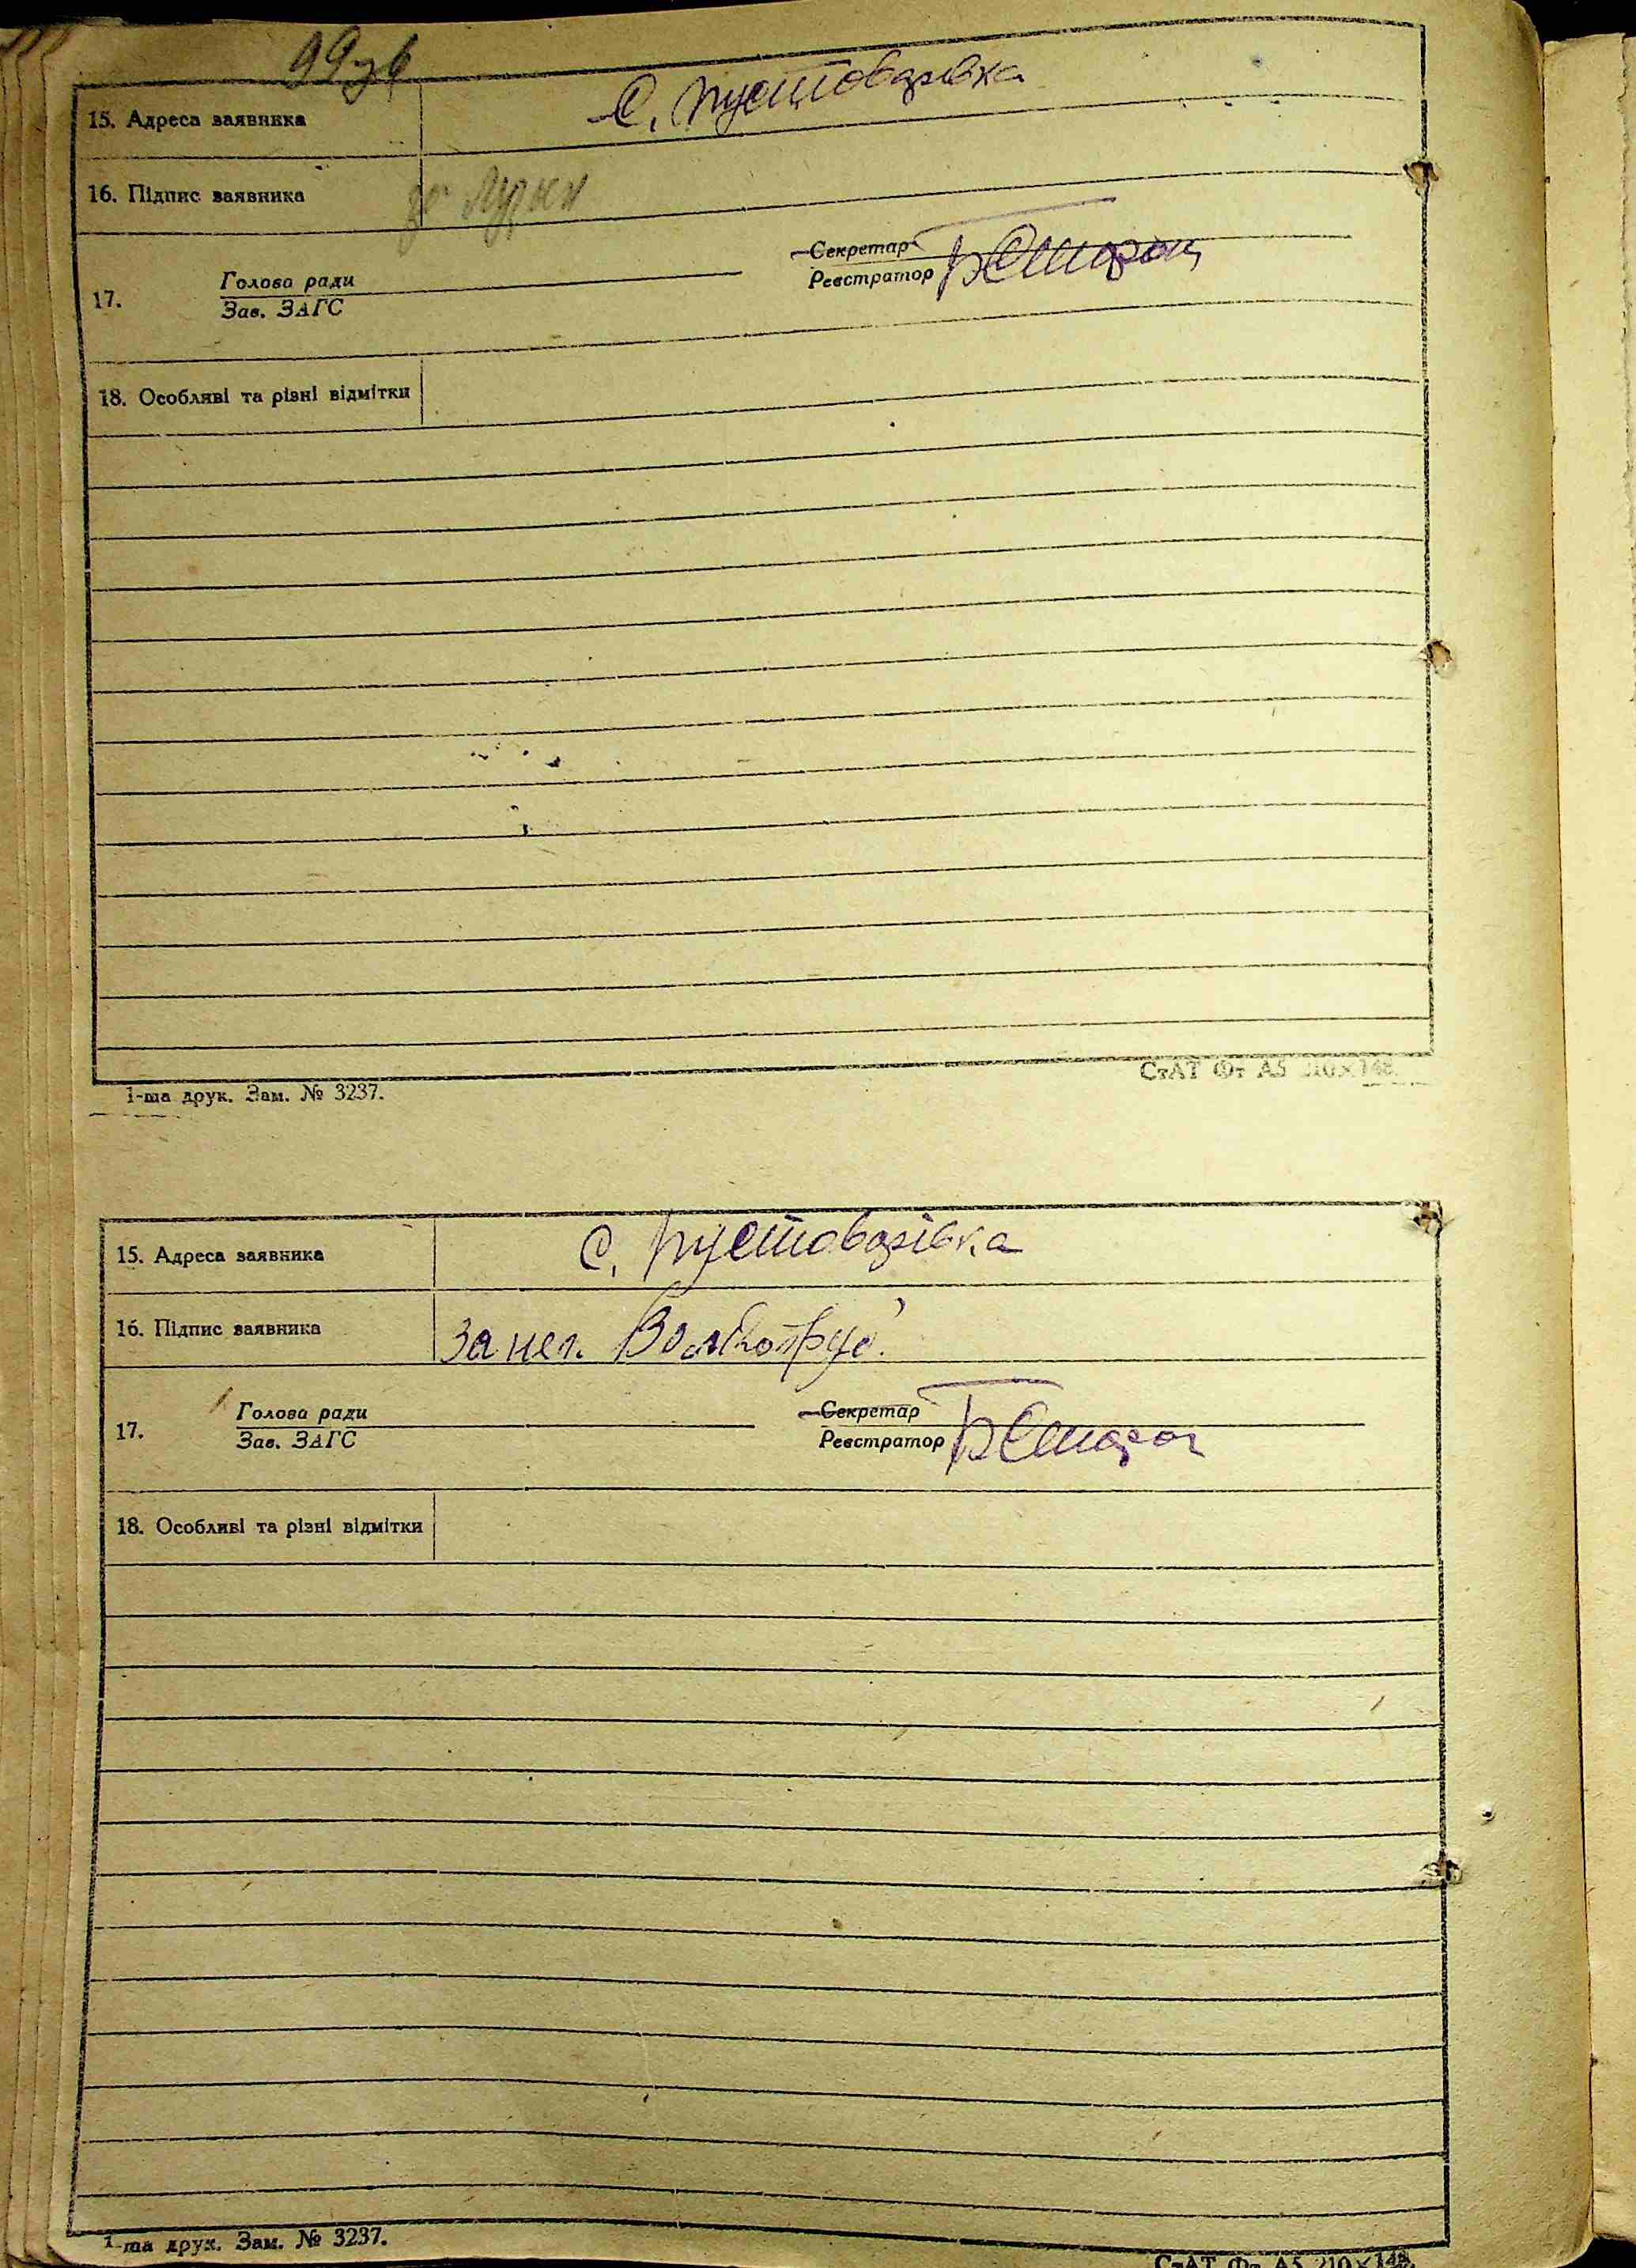 99зв
15. Адреса заявника с. Пустоварівка
16. Підпис заявника
Секретар
17. Голова ради
Зав. ЗАГС
Реєстратор
18. Особливі та різні відмітки
1-ша друк. Зам. № 3237.
СтАТ Фт А5 210×148.
15. Адреса заявника с. Пустоварівка
16. Підпис заявника за неп.
Голова ради Секретар
17. Зав. ЗАГС Реєстратор
18. Особливі та різні відмітки
1-ша друк. Зам. № 3237.
СтАТ Фт А5 210×148.